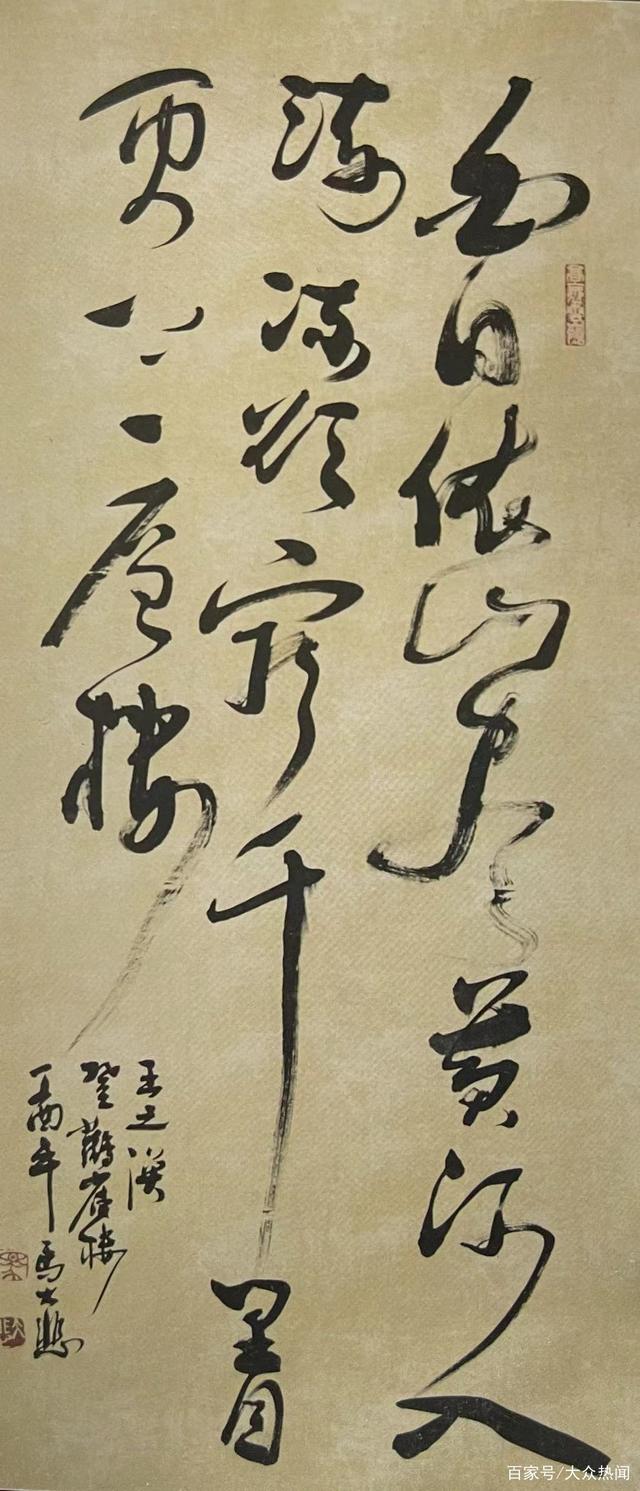 白日依山尽黄河入
海流欲穷千里目
更上一层楼
王之涣
登鹳雀楼
丁酉年马
百家号/大众热闻